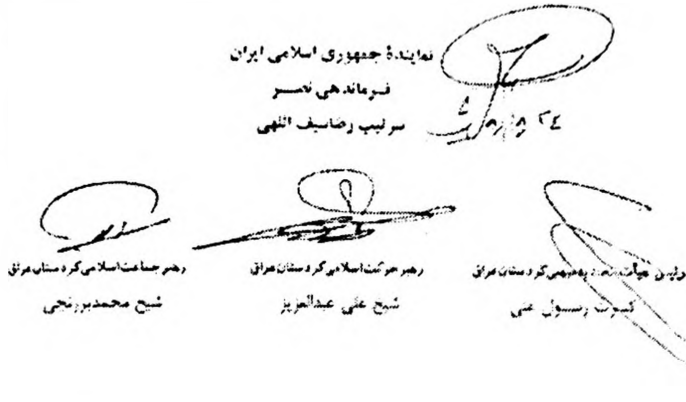 نمایندهٔ جمهوری اسلامی ایران
فرماندهی نصر
سرتیپ رضاسیف اللهی
رئیس هیأت اتحادیه میهنی کردستان عراق
کسرت رسول علی
رهبر حرکت اسلامی کردستان عراق
شیخ علی عبدالعزیز
رهبر جماعت اسلامی کردستان عراق
شیخ محمد برزنجی